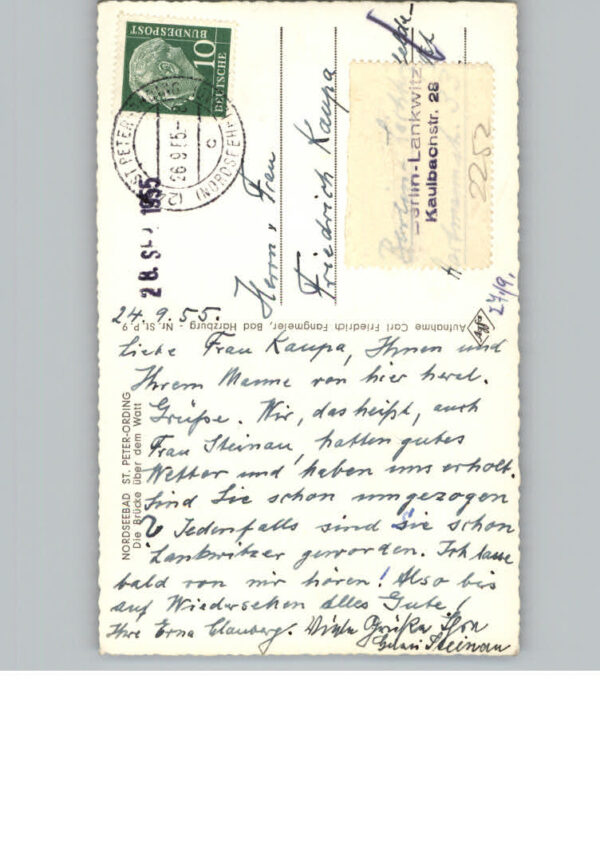 DEUTSCHE
BUNDESPOST
10
ST. PETER-ORDING
(NORDSEEHEILBAD)
26.9.55
c
28. Sep. 1955
Herrn u. Frau
Friedrich Kaupa
Berlin-Lankwitz
Kaulbachstr. 28
2252
27/9.
Aufnahme Carl Friedrich Fangmeier, Bad Harzburg - Nr. St. P 9
Agfa
NORDSEEBAD ST. PETER-ORDING
Die Brücke über dem Watt
24.9.55.
Liebe Frau Kaupa, Ihnen und
Ihrem Manne von hier herzl.
Grüße. Wir, das heißt, auch
Frau Steinau, hatten gutes
Wetter und haben uns erholt.
Sind Sie schon umgezogen
? Jedenfalls sind Sie schon
Lankwitzer geworden. Ich lasse
bald von mir hören! Also bis
auf Wiedersehen alles Gute!
Ihre Erna Clauberg. Viele Grüße Ihre
Steinau